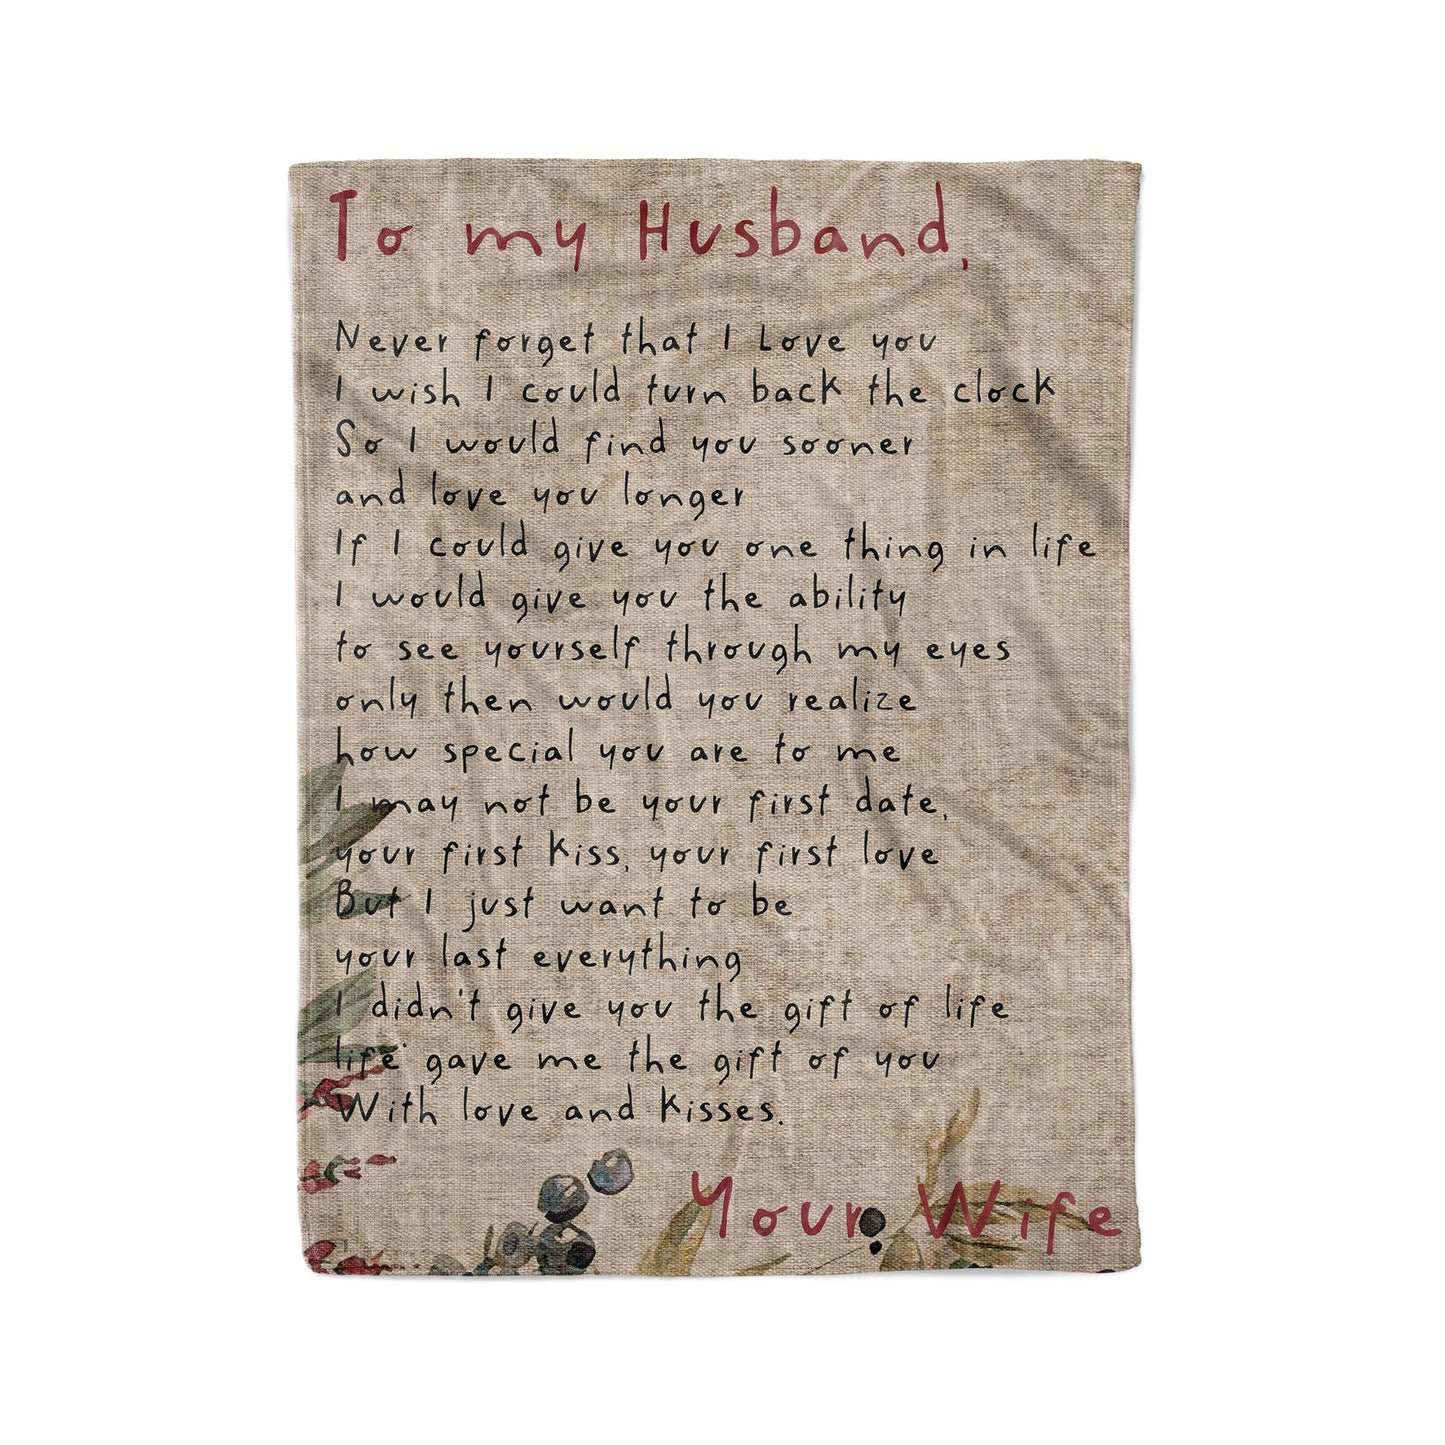 To my Husband,
Never forget that I Love you
I wish I could turn back the clock
So I would find you sooner
and love you longer
If I could give you one thing in life
I would give you the ability
to see yourself through my eyes
only then would you realize
how special you are to me
I may not be your first date,
your first kiss, your first love
But I just want to be
your last everything
I didn't give you the gift of life
life gave me the gift of you
With love and kisses.
Your Wife